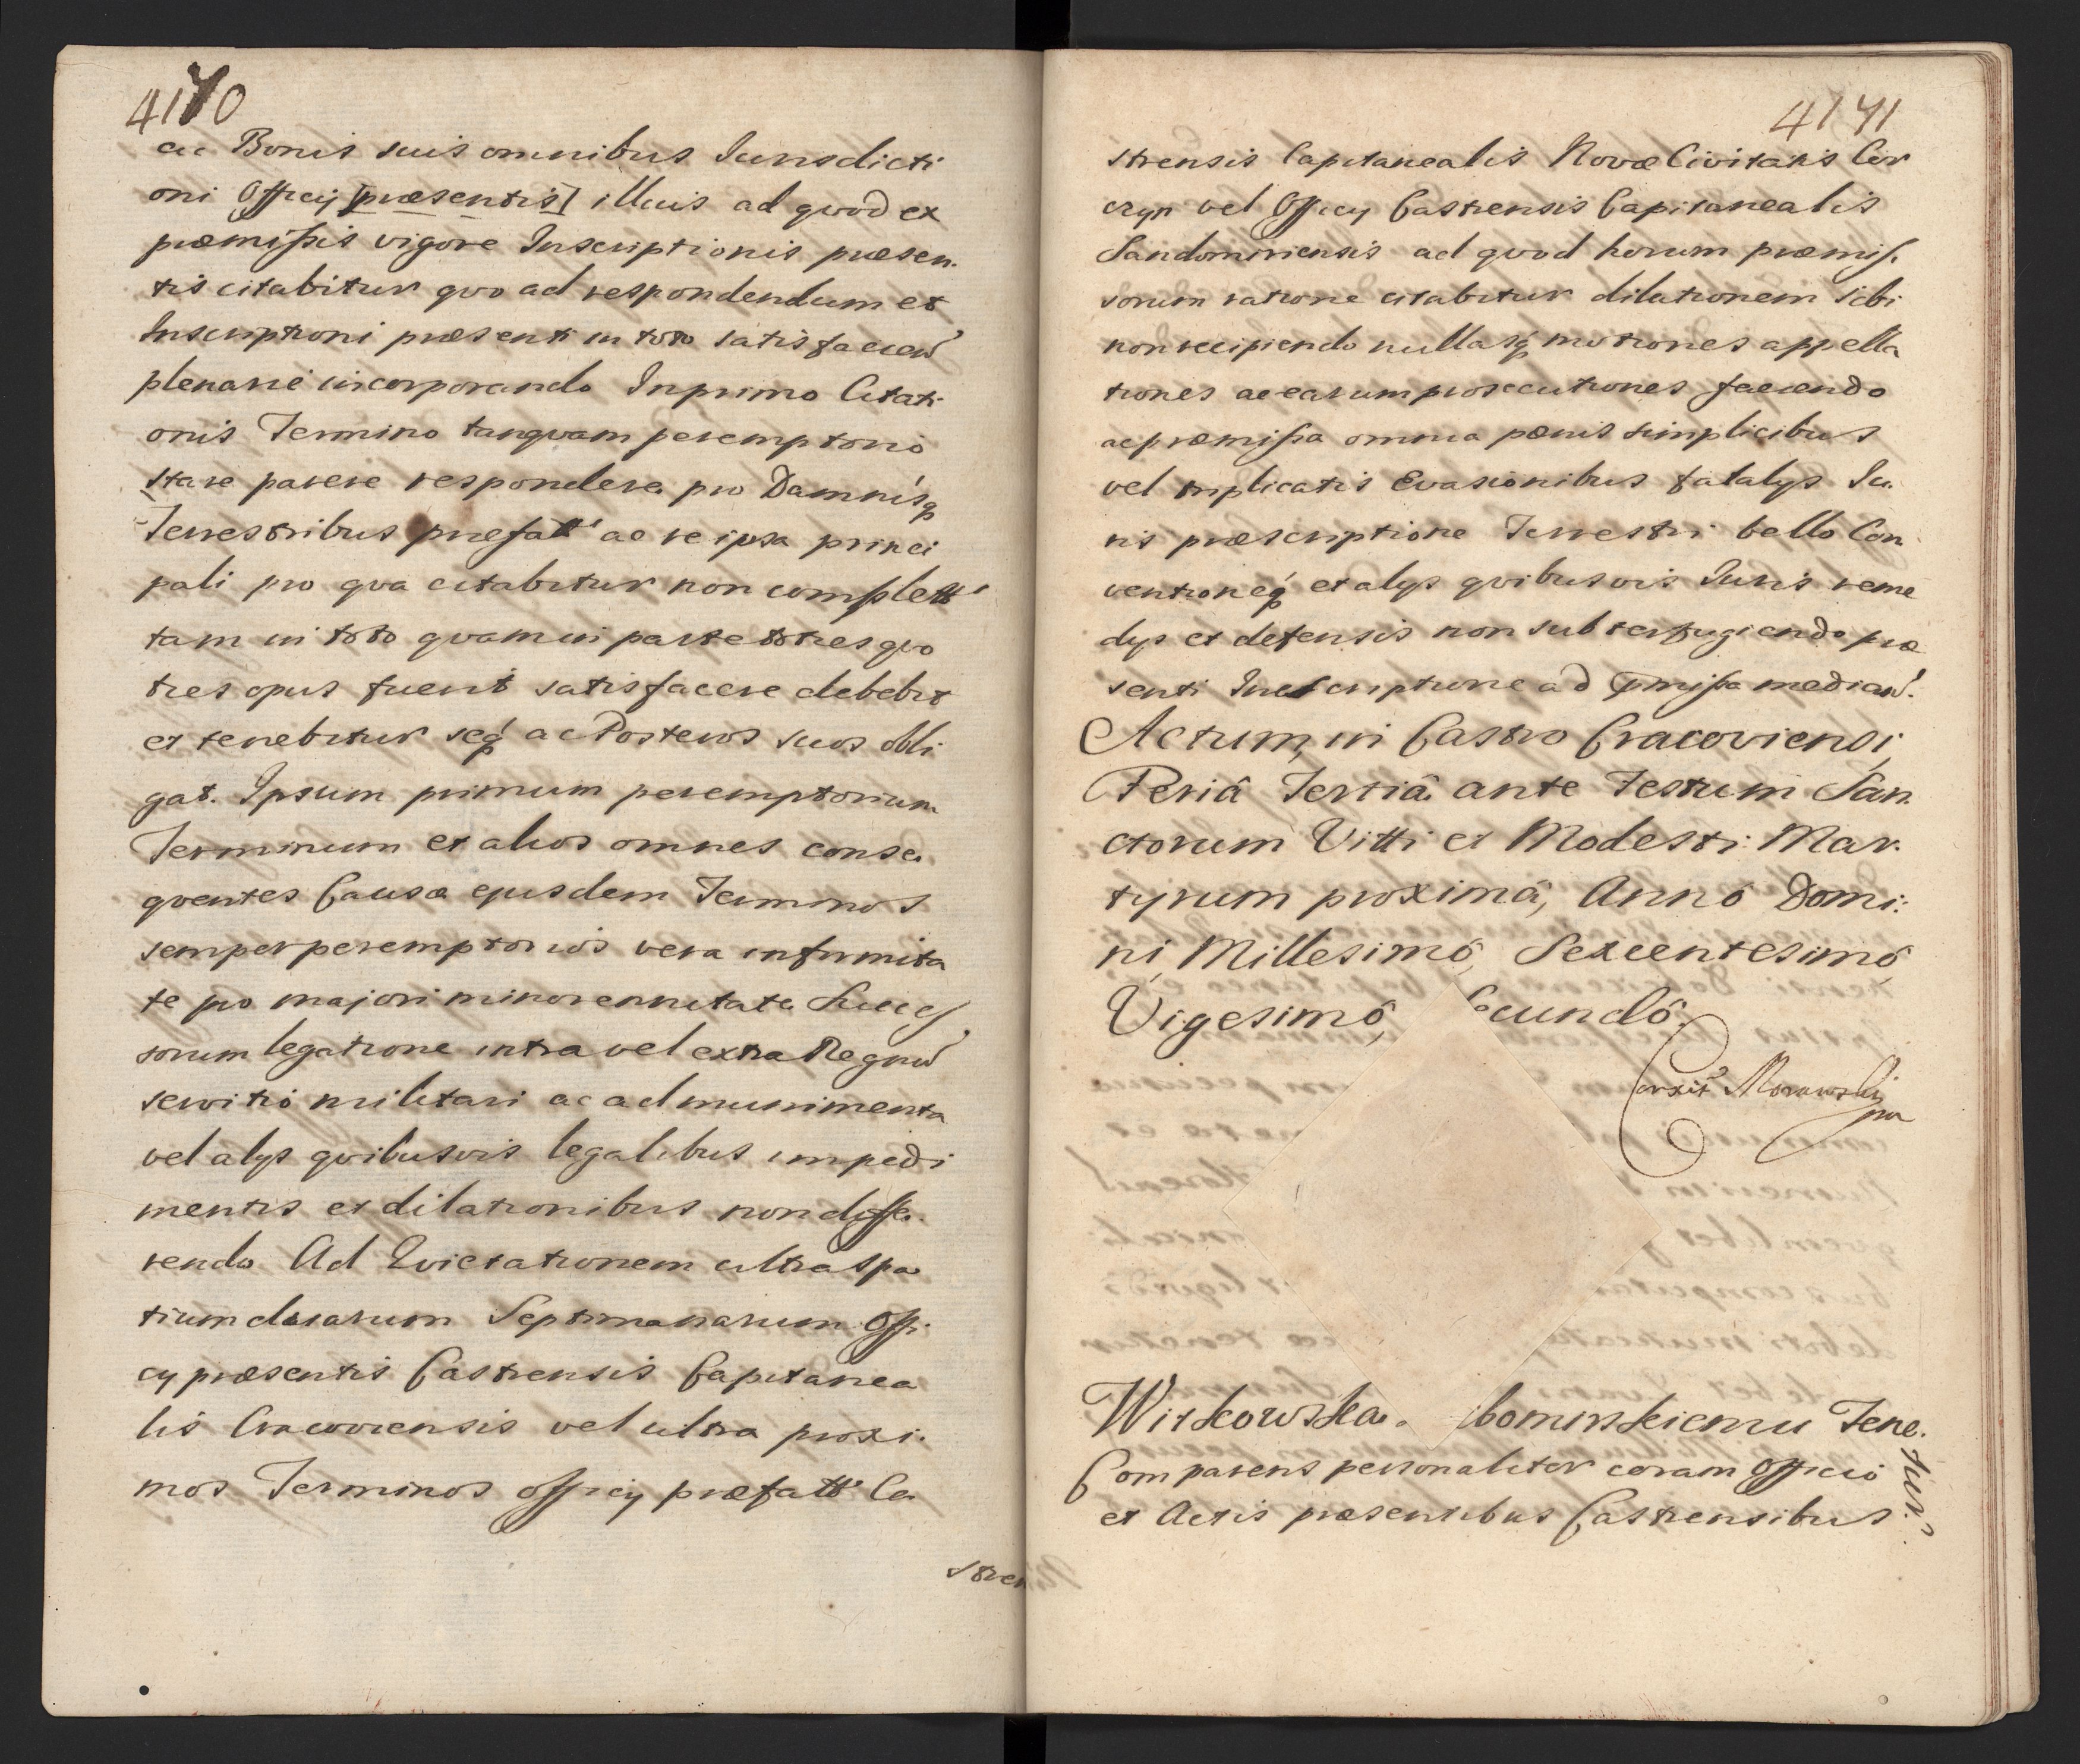 4170
ac Bonis suis omnibus Jurisdicti
oni Officij [præsentis] illius ad quod ex
præmissis vigore Inscriptionis præsen-
tis citabitur quo ad respondendum et
Inscriptioni præsenti in toto satisfaciend'
plenarie incorporando Inprimo Citati
onis Termino tanqvam peremptorio
stare parere respondere pro Damnisq
Terrestribus præfatt' ac re ipsa princi
pali pro qva citabitur non complett'
tam in toto qvam in parte toties qvo
ties opus fuerit satisfacere debebit
et tenebitur seq ac Posteros suos obli
gat. Ipsum primum peremptorium
Terminum et alios omnes conse
qventes Causæ ejusdem Terminos
semper peremptorios vera infirmita
te pro majori minorennitate Succes
sorum legatione intra vel extra Regnu'
servitio militari ac ad munimenta
vel alys qvibusvis legalibus impedi
mentis et dilationibus non diffe-
rendo Ad Evictationem ultra spa
tium duarum Septimanarum Offi-
cy præsentis Castrensis Capitanea
lis Cracoviensis vel ultra proxi-
mos Terminos officy præfatt' Ca
stren
4171
strensis Capitanealis Novæ Civitatis Cor
czyn vel Officy Castrensis Capitanealis
Sandomiriensis ad qvod horum præmis-
sorum ratione citabitur dilationem sibi
non recipiendo nullasq motiones appella
tiones ac earum prosecutiones faciendo
ac præmissa omnia pœnis simplicibus
vel triplicatis Evasionibus fatalys Ju-
ris præscriptione Terrestri bello Con
ventioneq et alys qvibusvis Juris reme
dys et defensis non subterfugiendo præ
senti Inscriptione ad pmissa median'.
Actum, in Castro Cracoviensi,
Feriâ Tertiâ ante Festum San-
ctorum Vitti et Modesti Mar-
tyrum proximâ, Annô Domi:
ni, Millesimô, Sexcentesimô,
Vigesimô, ecundô.
Corxit Morawski
mp
Witkowska. bomirskiemu Tene-
tur.
Comparens personaliter coram Officio
et Actis præsentibus Castrensibus